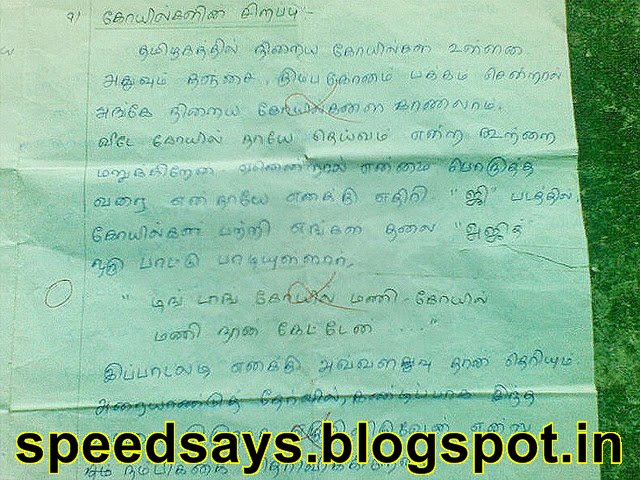 9) கோயில்களின் சிறப்பு :-
தமிழகத்தில் நிறைய கோயில்கள் உள்ளன
அதுவும் தஞ்சை, கும்பகோணம் பக்கம் சென்றால்
அங்கே நிறைய கோயில்களை காணலாம்.
வீடே கோயில் தாயே தெய்வம் என்ற கூற்றை
மறுக்கிறேன் ஏனென்றால் என்னை பொறுத்த
வரை என் தாயே எனக்கு எதிரி "ஜி" படத்தில்
கோயில்கள் பற்றி எங்கள் தலை "அஜித்"
ஒரு பாட்டு பாடியுள்ளார்.
" டிங் டாங் கோயில் மணி கோயில்
மணி நான் கேட்டேன் ...."
இப்பாடலடி எனக்கு அவ்வளவு தான் தெரியும்
அரையாண்டுத் தேர்வில், கண்டிப்பாக இந்த
என்ற
நம்பிக்கை
speedsays.blogspot.in